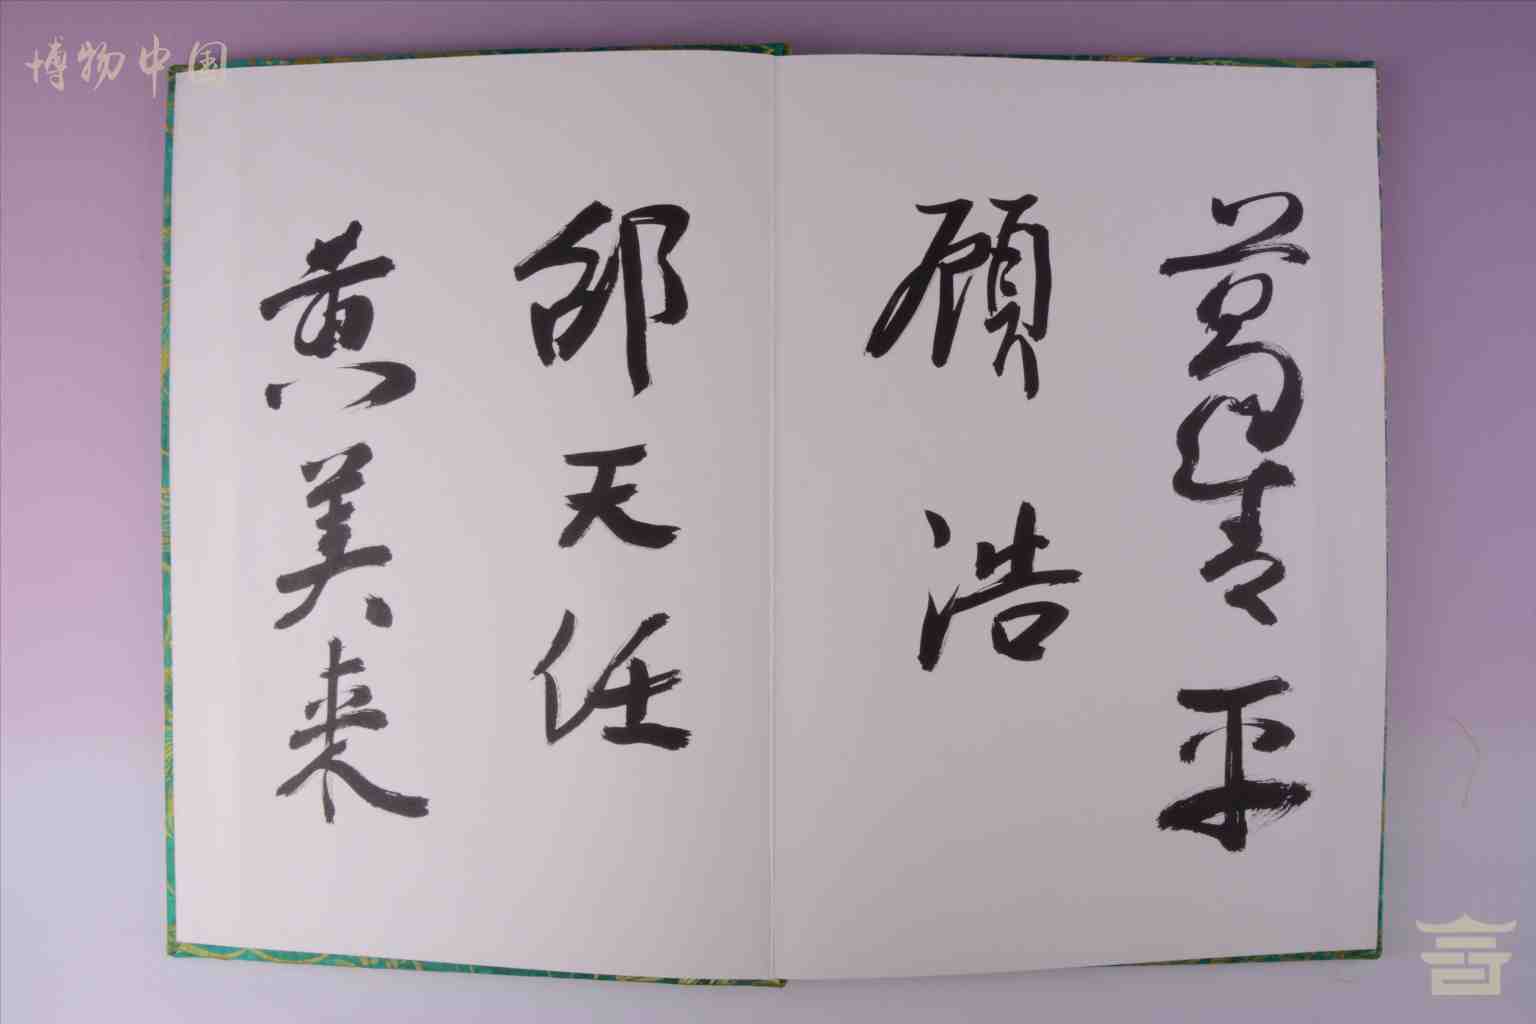 博物中国
葛青平
顾浩
邵天任
黄美来